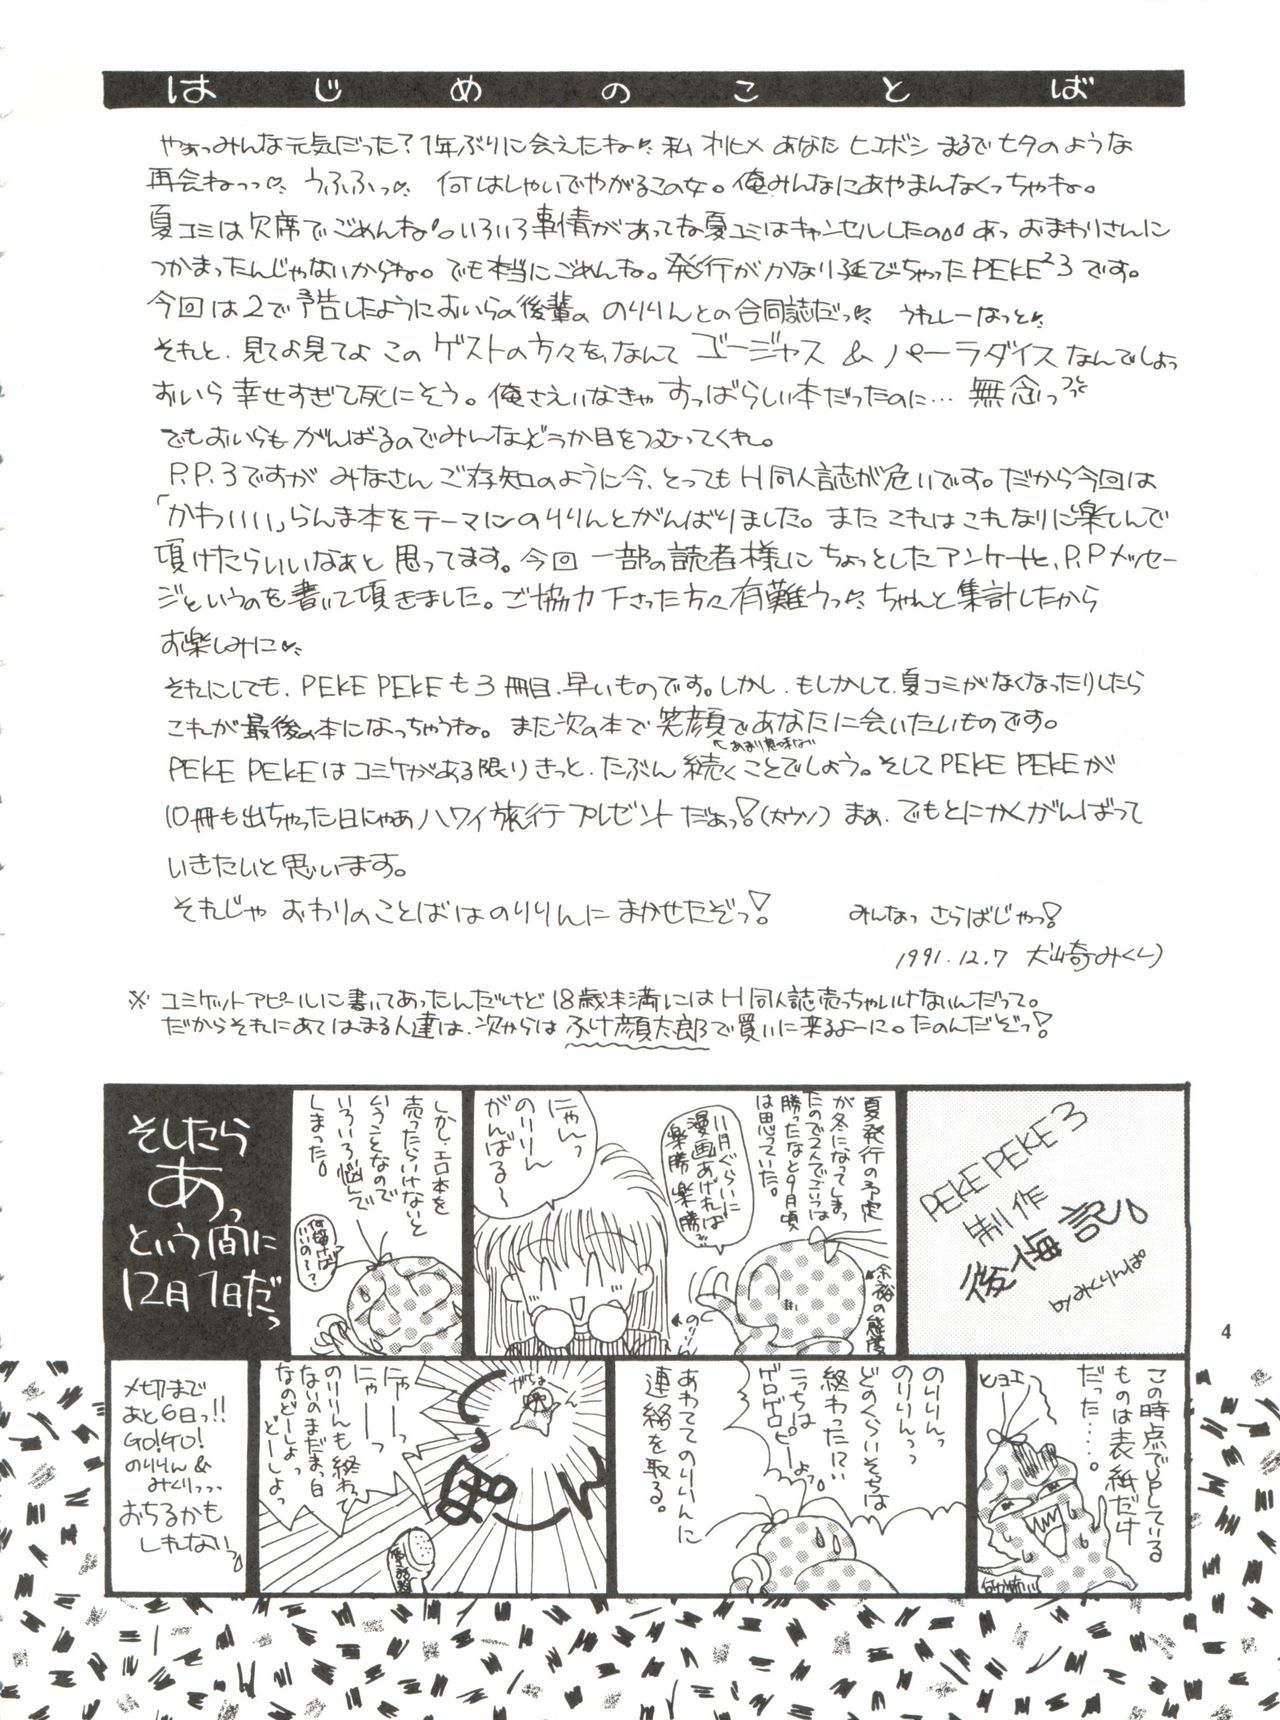 はじめのことば
やぁっみんな元気だった?1年ぶりに会えたね 私 オリヒメ あなた ヒコボシ まるで七夕のような
再会ねっっ うふふっ 何はしゃいでやがるこの女。俺みんなにあやまんなくっちゃね。
夏コミは欠席でごめんね。いろいろ事情があってな夏コミはキャンセルしたの あっ おまわりさんに
つかまったんじゃないからね。でも本当にごめんね。発行がかなり延びちゃったPEKE²3です。
今回は2で予告したようにおいらの後輩の のりりんとの合同誌だっ うれしーなっと
それと、見てよ見てよ このゲストの方々を、なんて ゴージャス & パーラダイス なんでしょっ
おいら 幸せすぎて死にそう。俺さえいなきゃ すっばらしい本だったのに… 無念っ
でもおいらも がんばるのでみんなどうか目をつむってくれ。
P.P.3ですが みなさん ご存知のように今、とってもH同人誌が危いです。だから今回は
「かわいい」らんま本をテーマにのりりんとがんばりました。また これはこれなりに楽しんで
頂けたらいいなぁと 思ってます。今回 一部の読者様に ちょっとしたアンケートと、P.Pメッセー
ジというのを書いて頂きました。ご協力下さった方々 有難うっ ちゃんと集計したから
お楽しみに
それにしても、PEKE PEKEも3冊目、早いものです。しかし、もしかして、夏コミがなくなったりしたら
これが最後の本になっちゃうね。また次の本で笑顔であなたに会いたいものです。
↖あまり意味ない
PEKE PEKEはコミケがある限りきっと、たぶん 続くことでしょう。そしてPEKE PEKEが
10冊も出ちゃった日にゃあ ハワイ旅行 プレゼント だぁっ!(大ウソ) まぁ、でもとにかくがんばって
いきたいと思います。
それじゃ おわりのことばはのりりんに まかせたぞっ! みんなっ さらばじゃっ!
1991.12.7 犬崎みくり
※ コミケットアピールに書いてあったんだけど 18歳未満にはH同人誌売っちゃいけないんだって。
だからそれにあてはまる人達は、次からは ふけ顔太郎で買いに来るよーに。たのんだぞっ!
PEKE PEKE 3
制作
後悔記
by みくりんぱ
夏発行の予定
が冬になってしまっ
たので2人でこいつは
勝ったなと9月頃
は思っていた。
余裕の態度
11月ぐらいに
漫画あげれば
楽勝楽勝
にゃんっ
のりりん
がんばる〜
のりりん
しかし、エロ本を
売ったらいけないと
いうことなので
いろいろ悩んで
しまった。
何描けば
いいの〜?
そしたら
あっ
という間に
12月1日だっ
この時点でUPしている
ものは表紙だけ
だった……。
ヒョエ
のりりんっ
のりりんっ
どのくらいそちらは
終わったにい
こっちは
ゲロゲロピーよっ
あわててのりりんに
連絡を取る。
ガーン
にゃーっ
にゃーっ
のりりんも終わって
ないのまだまっ白
なのどーしよっ
どーしよっ
受話器
〆切まで
あと6日っ!!
GO!GO!
のりりん&
みくりっっ
おちるかも
しれないっ
4